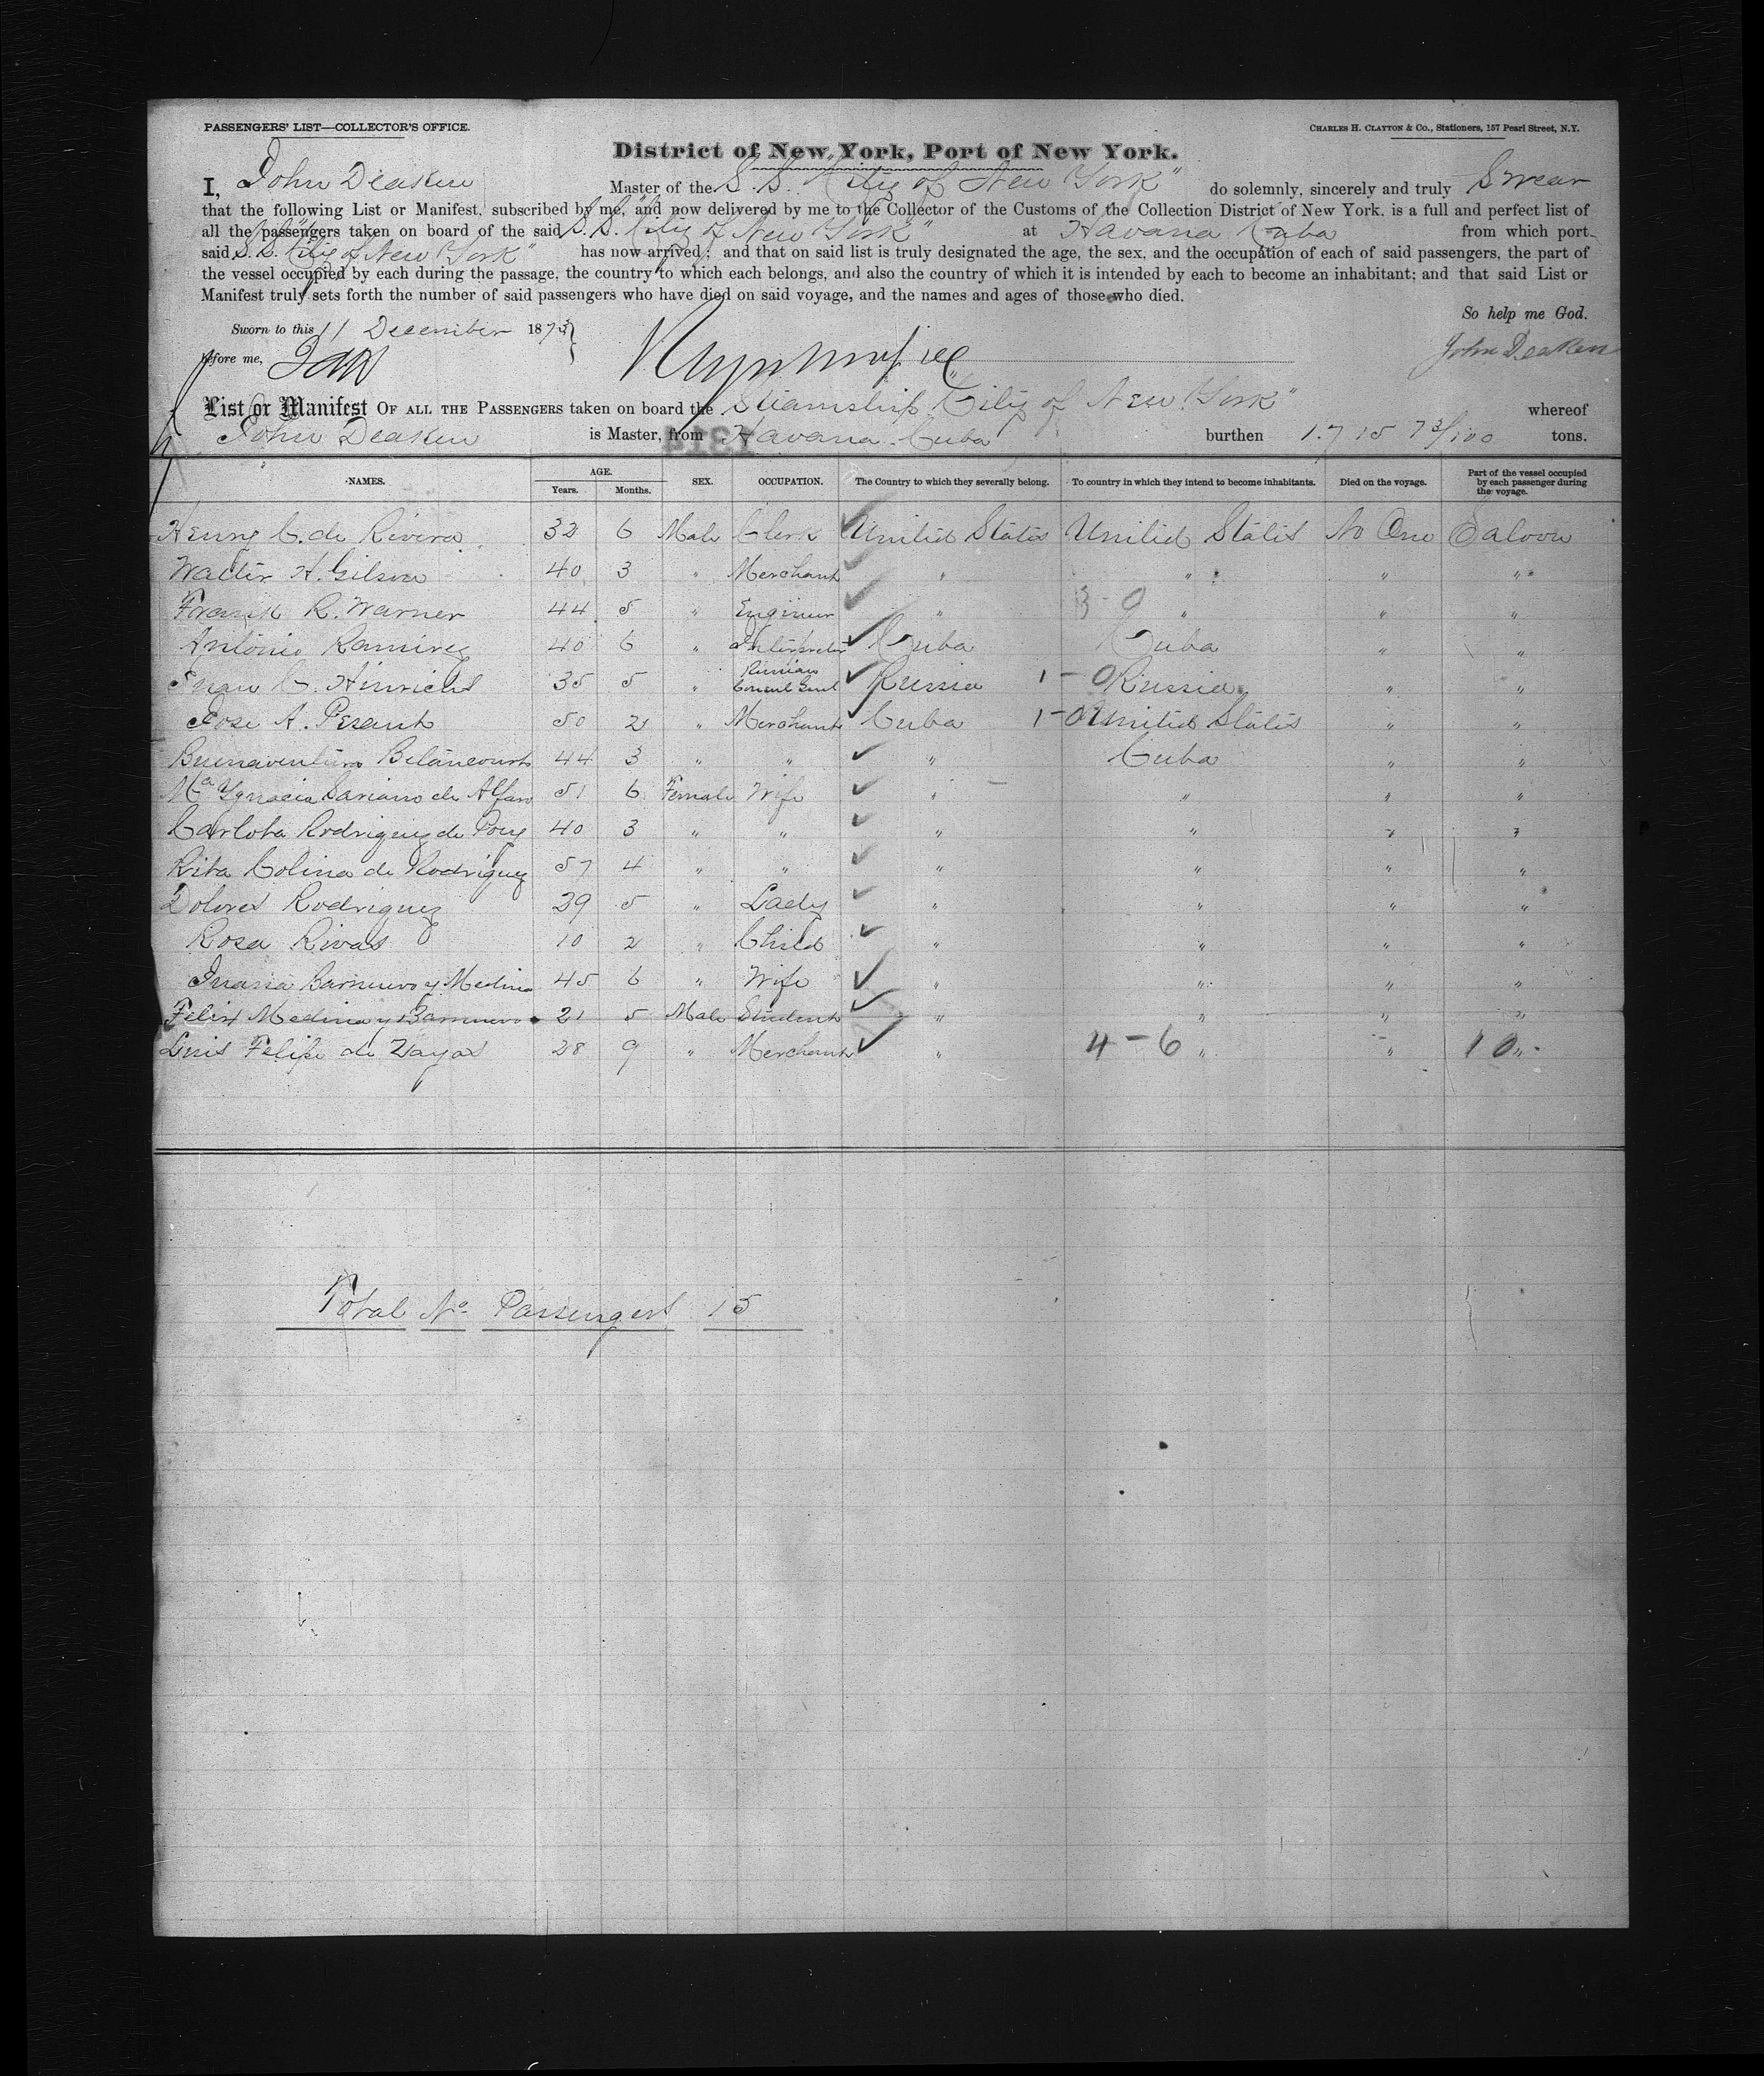 PASSENGERS' LIST—COLLECTOR'S OFFICE.
CHARLES H. CLAYTON & CO., Stationers, 157 Pearl Street, N.Y.
District of New York, Port of New York.
I, John Deaken Master of the S.S. "City of New York" do solemnly, sincerely and truly Swear
that the following List or Manifest, subscribed by me, and now delivered by me to the Collector of the Customs of the Collection District of New York, is a full and perfect list of
all the passengers taken on board of the said S.S. "City of New York" at Havana Cuba from which port
said S.S. "City of New York" has now arrived; and that on said list is truly designated the age, the sex, and the occupation of each of said passengers, the part of
the vessel occupied by each during the passage, the country to which each belongs, and also the country of which it is intended by each to become an inhabitant; and that said List or
Manifest truly sets forth the number of said passengers who have died on said voyage, and the names and ages of those who died.
So help me God.
Sworn to this 11 December 1875
John Deaken
before me,
List or Manifest OF ALL THE PASSENGERS taken on board the Steamship "City of New York" whereof
John Deaken is Master, from Havana Cuba burthen 1.715 73/100 tons.
NAMES. AGE. Years. Months. SEX. OCCUPATION. The Country to which they severally belong. To country in which they intend to become inhabitants. Died on the voyage. Part of the vessel occupied by each passenger during the voyage.
Henry C. de Rivera 32 6 Male Clerk United States United States No One Saloon
Walter H. Gilson 40 3 " Merchant " " " "
Frank R. Warner 44 5 " Engineer " 3-0 " " "
Antonio Ramirez 40 6 " Interpreter Cuba Cuba " "
Juan C. Hinrichs 35 5 " Russian Consul Genl Russia 1-0 Russia " "
Jose A. Pesant 50 2 " Merchant Cuba 1-0 United States " "
Buenaventura Betancourt 44 3 " " " Cuba " "
Ma Ygnacia Sariano de Alfaro 51 6 Female Wife " " " "
Carlota Rodriguez de Pouy 40 3 " " " " " "
Rita Colina de Rodriguez 57 4 " " " " " "
Dolores Rodriguez 39 5 " Lady " " " "
Rosa Rivas 10 2 " Child " " " "
Juana Barnuevo y Medina 45 6 " Wife " " " "
Felix Medina y Barnuevo 21 5 Male Student " " " "
Luis Felipe de Zayas 28 9 " Merchant " 4-6 " " 10 "
Total No. Passengers 15